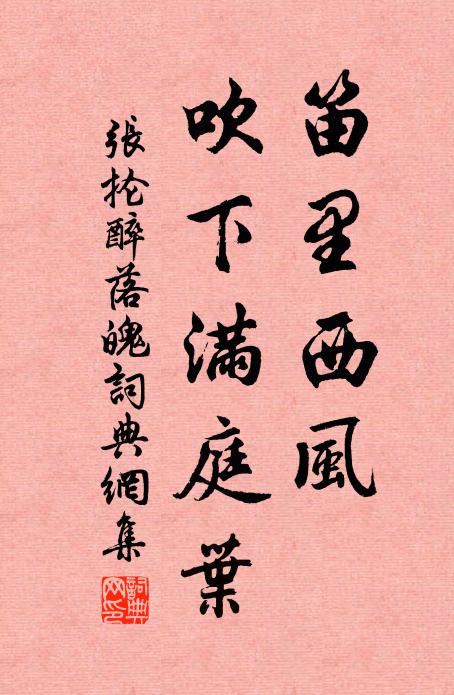 笛里西風
吹下滿庭葉
張掄醉落魄詞典網集
詞典網印